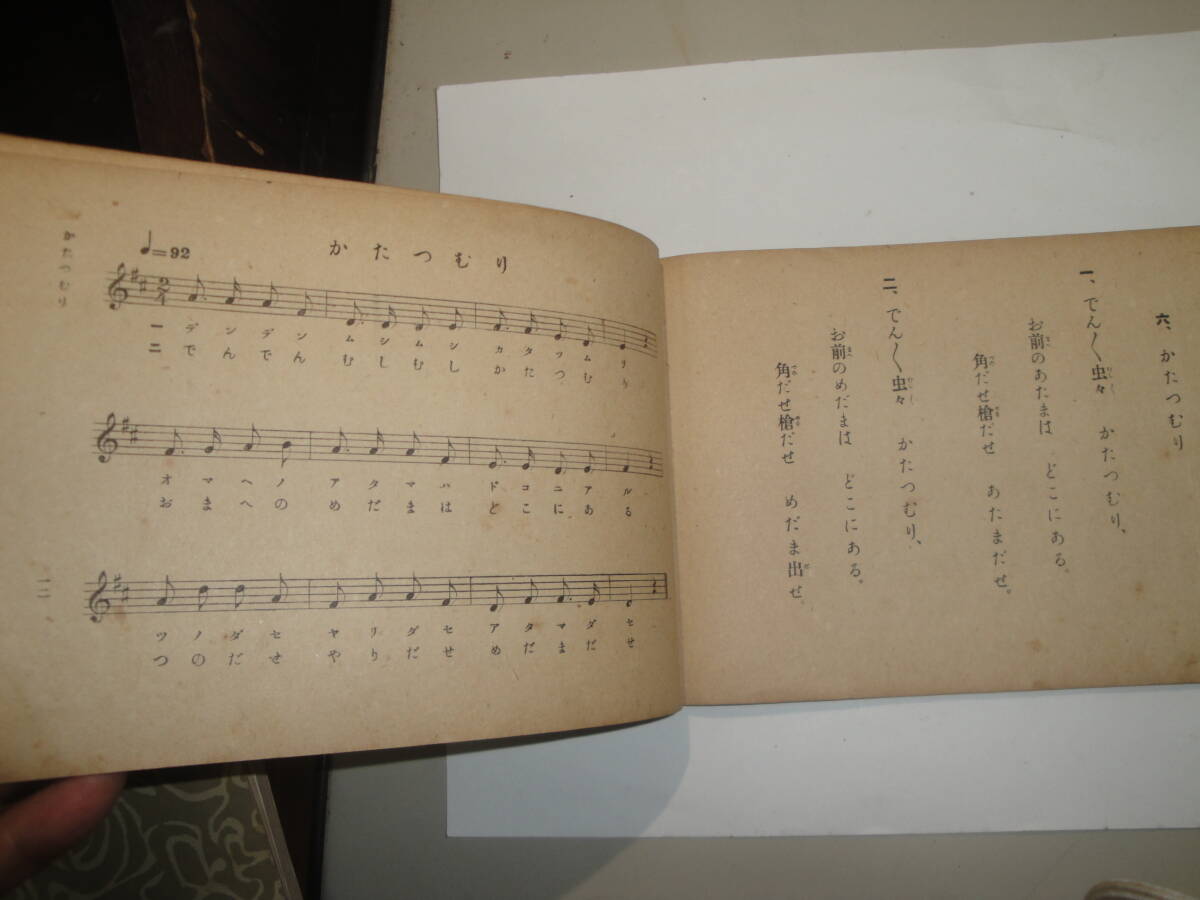 六、かたつむり
一、でん〳〵虫々　かたつむり、
お前のあたまは　どこにある。
角だせ槍だせ　あたまだせ。
二、でん〳〵虫々　かたつむり、
お前のめだまは　どこにある。
角だせ槍だせ　めだま出せ。
かたつむり
♩=92
一 デンデン ムシムシ カタツム リ
二 でんでん むしむし かたつむ り
オマヘノ アタマハ ドコニア ル
おまへの めだまは どこにあ る
ツノダセ ヤリダセ アタマダ セ
つのだせ やりだせ めだまだ せ
かたつむり
一二